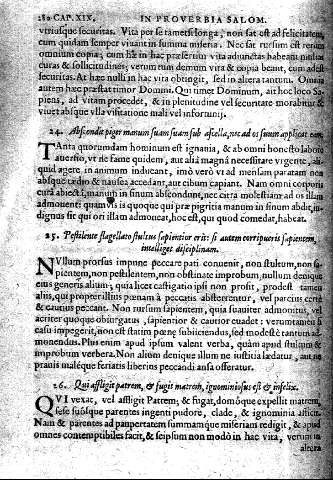 280 CAP. XIX. IN PROVERBIA SALOM.
vtriusque securitas. Vita per se rametsi longa, non sat est ad felicitatem,
cum quidam semper viuant in summa miseria. Nec rursum est rerum
omnium copia; cum hæ in hac præsertim vita adiunctas habeant multas
curas & sollicitudines; verum tum demum vita & copia beant, cum adest
securitas. At hæc nulli in hac vita obtingit, sed in altera tantum. Omnia
autem hæc præstat timor Domini. Qui timet Dominum, ait hoc loco Sa-
piens, ad vitam procedet, & in plenitudine vel securitate morabitur &
viuet absque vlla visitatione mali vel infortunij.
24. Abscondit piger manum suam sub ascella, nec ad os suum applicat eam.
TAnta quorumdam hominum est ignauia, & ab omni honesto labore
auersio, vt ne fame quidem, aut alia magna necessitate vrgente, ali-
quid agere, in animum inducant, imò verò vt ad mensam paratam non
absque tædio & nausea accedant, aut cibum capiant. Nam omni corporis
cura abiecta, manus in sinum abscondunt, nec citra molestiam ad os illam
admouent: quamuis is quoque qui præ pigritia manum in sinum abdit, in-
dignus sit qui ori illam admoueat, hoc est, qui quod comedat, habeat.
25. Pestilente flagellato stultus sapientior erit: si autem corripueris sapientem,
intelliget disciplinam.
NVllum prorsus impune peccare pati conuenit, non stultum, non sa-
pientem, non pestilentem, non obstinate improbum, nullum denique
eius generis alium; quia licet castigatio ipsi non prosit, prodest tamen
alijs, qui propter illius pœnam à peccatis absterrentur, vel parcius certè
& cautius peccant. Non rursum sapientem, quia suauiter admonitus, vel
acriter quoque obiurgatus, sapientior & cautior euadet; verumtamen si
casu impegerit, non est statim pœnæ subijciendus, sed modestè tantum ad-
monendus. Plus enim apud ipsum valent verba, quàm apud stultum &
improbum verbera. Non alium denique illum ne iustitia lædatur, aut ne
prauis malèque feriatis liberius peccandi ansa offeratur.
26. Qui affligit patrem, & fugit matrem, ignominiosus est & infelix.
QVI vexat, vel affligit Patrem; & fugat, domoque expellit matrem,
sese suosque parentes ingenti pudore, clade, & ignominia afficit.
Nam & parentes ad paupertatem summamque miseriam redigit, & apud
omnes contemptibiles facit, & seipsum non modò in hac vita, verum in
altera